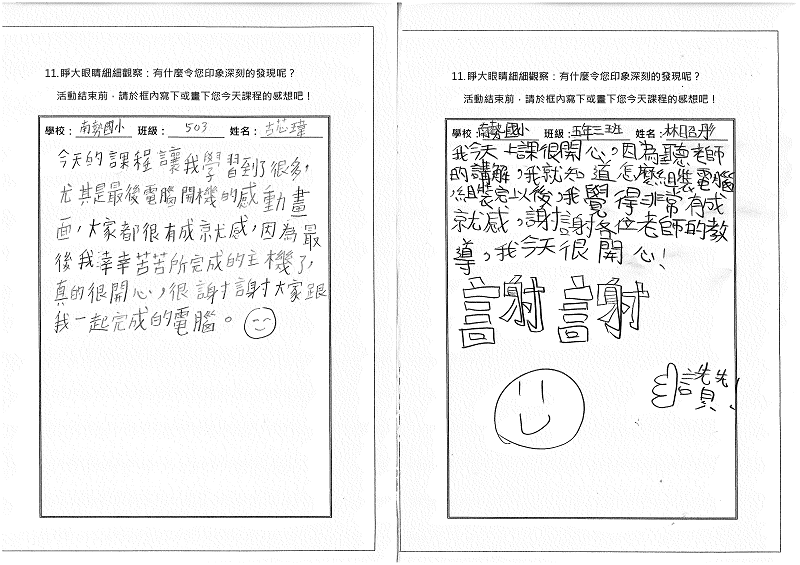 11.睜大眼睛細細觀察：有什麼令您印象深刻的發現呢？
活動結束前，請於框內寫下或畫下您今天課程的感想吧！
學校：南勢國小 班級：503 姓名：古芯瑋
今天的課程讓我學習到了很多，
尤其是最後電腦開機的感動畫
面，大家都很有成就感，因為最
後我們辛辛苦苦所完成的主機了，
真的很開心，很謝謝大家跟
我一起完成的電腦。
11.睜大眼睛細細觀察：有什麼令您印象深刻的發現呢？
活動結束前，請於框內寫下或畫下您今天課程的感想吧！
學校：南勢國小 班級：五年三班 姓名：林昭彤
我今天上課很開心，因為聽老師
的講解，我就知道怎麼組裝電腦
組裝完以後，我覺得非常有成
就感，謝謝各位老師的教
導，我今天很開心！
謝謝
讚！